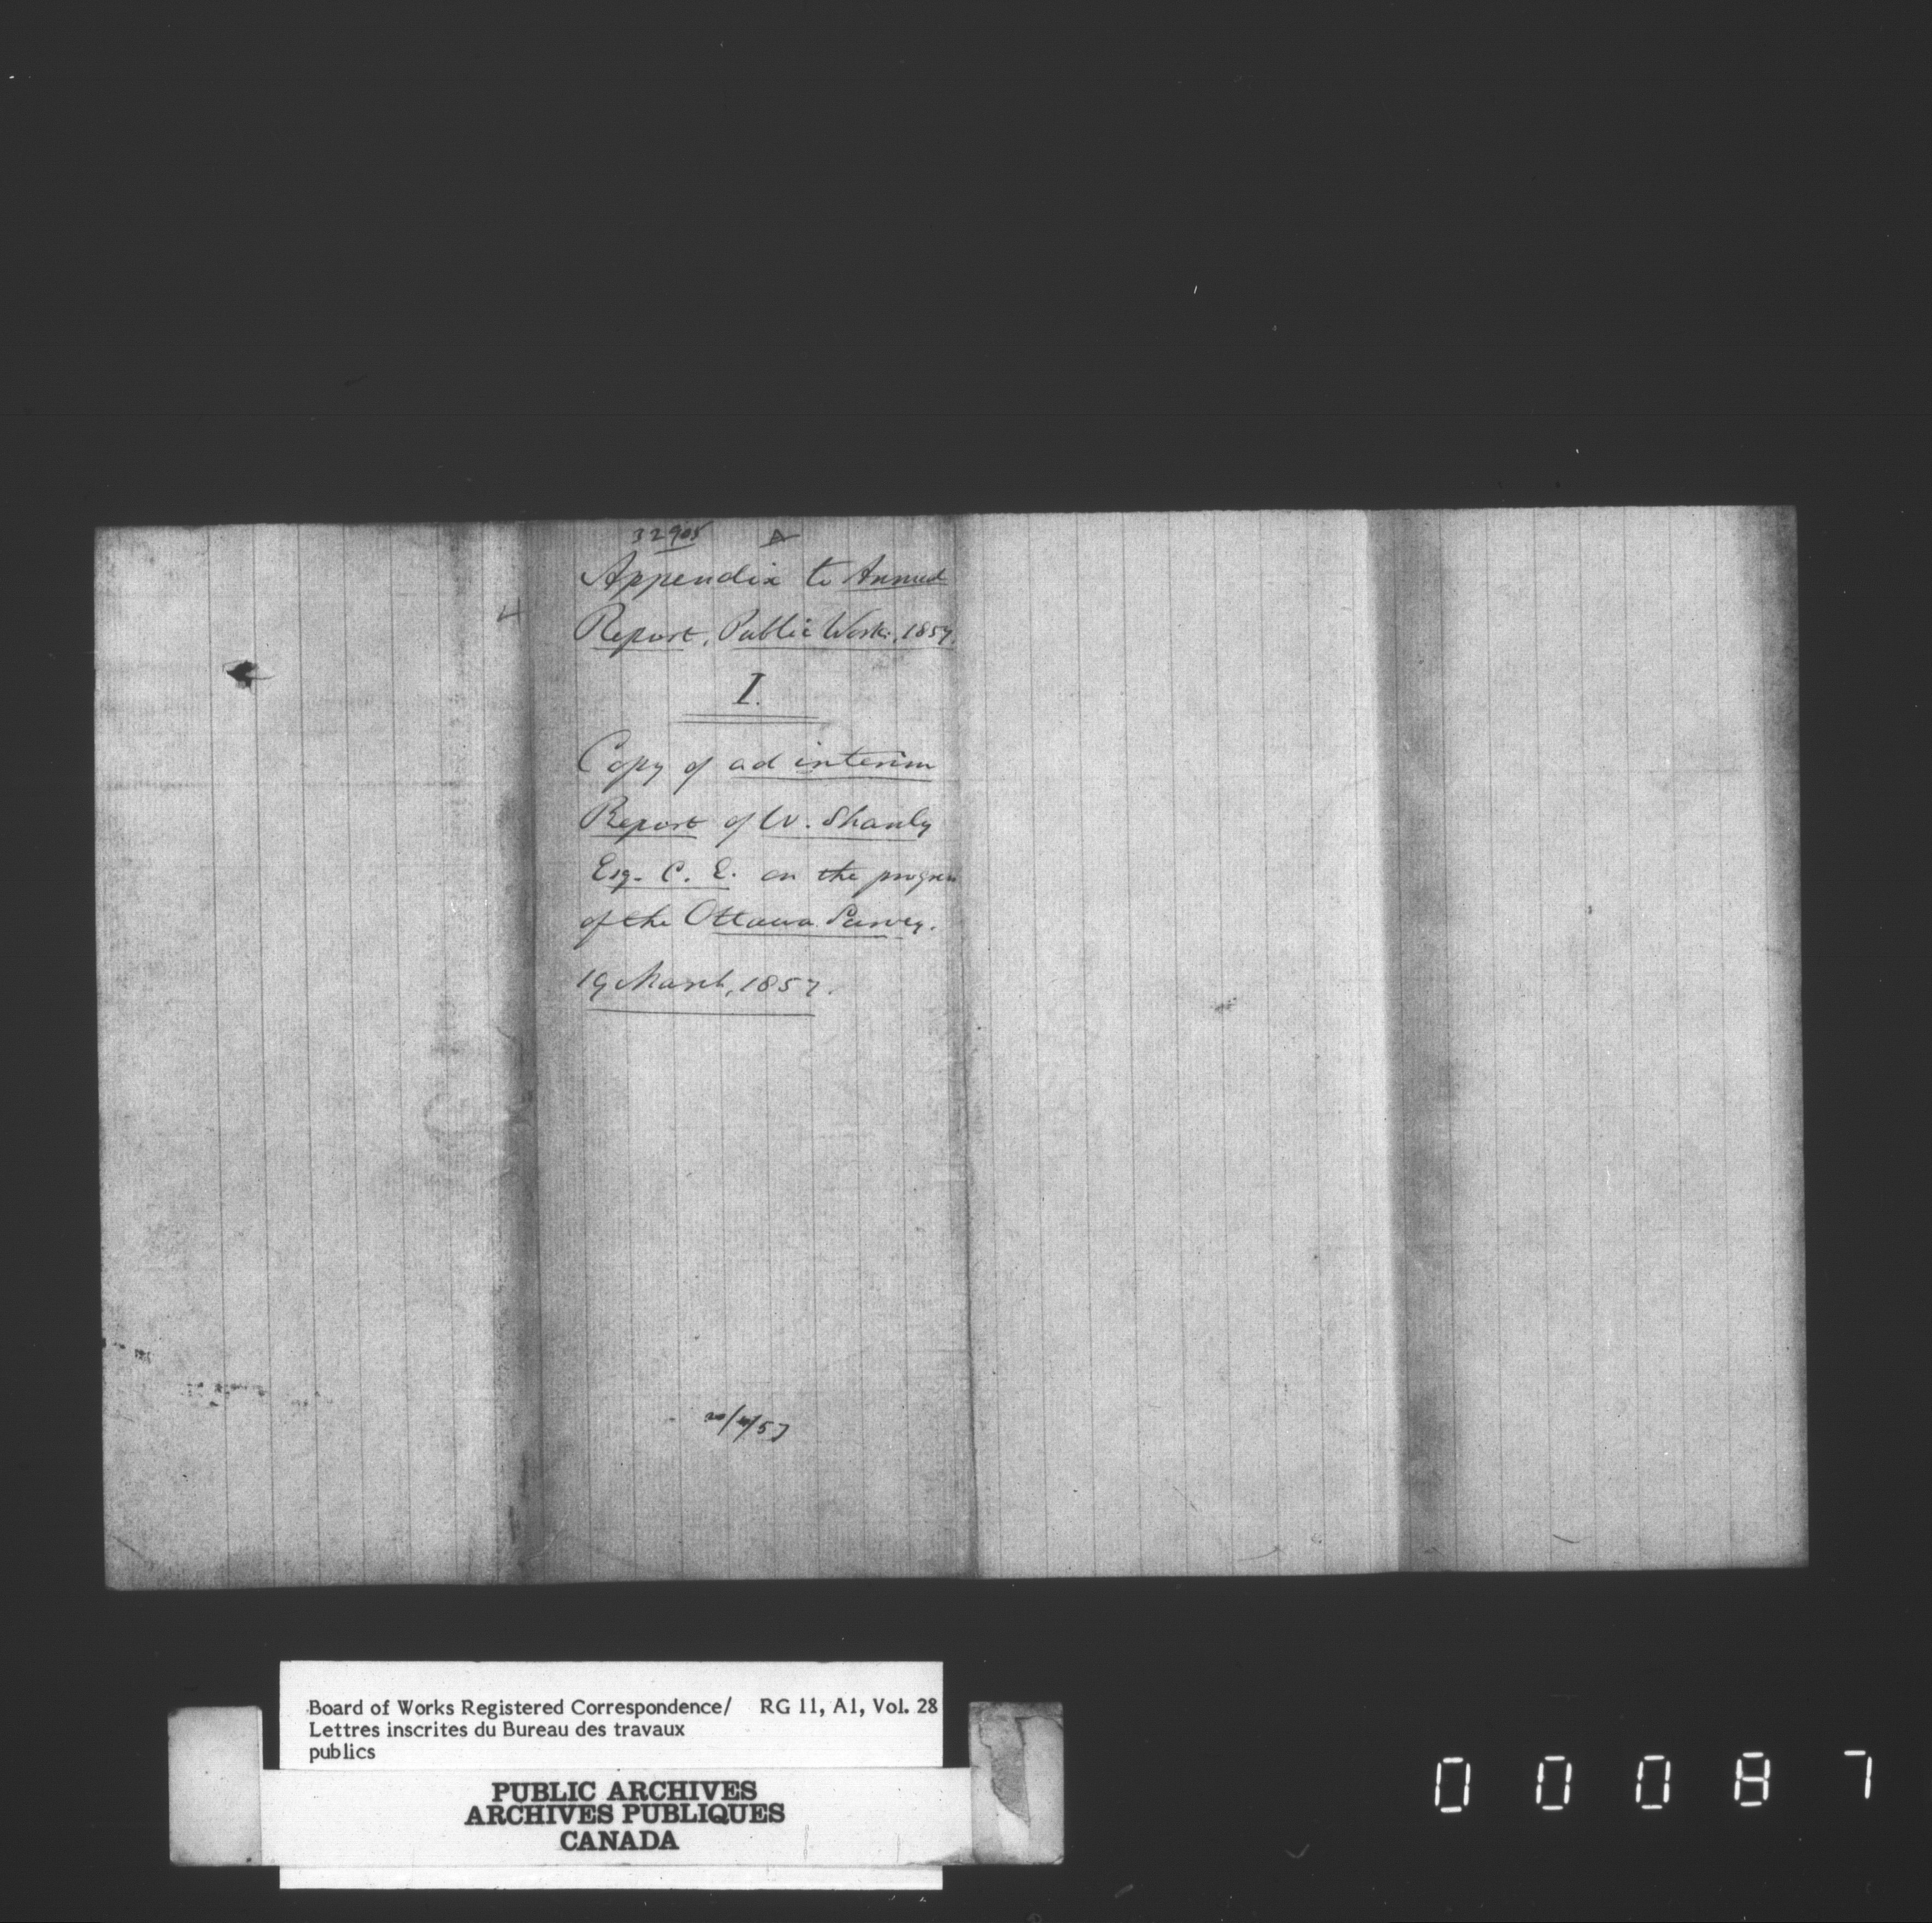 32905
Appendix to Annual
Report, Public Works, 1857.
I.
Copy of ad interim
Report of W. Shanly
Esq. C. E. on the progress
of the Ottawa Survey.
19 March, 1857.
Board of Works Registered Correspondence/ RG 11, A1, Vol. 28
Lettres inscrites du Bureau des travaux
publics
PUBLIC ARCHIVES
ARCHIVES PUBLIQUES
CANADA
00087